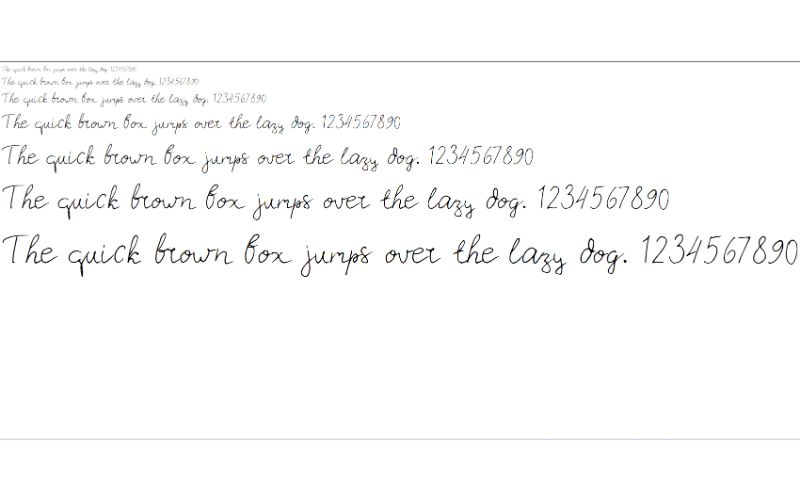 The quick brown fox jumps over the lazy dog. 1234567890
The quick brown fox jumps over the lazy dog. 1234567890
The quick brown fox jumps over the lazy dog. 1234567890
The quick brown fox jumps over the lazy dog. 1234567890
The quick brown fox jumps over the lazy dog. 1234567890
The quick brown fox jumps over the lazy dog. 1234567890
The quick brown fox jumps over the lazy dog. 1234567890